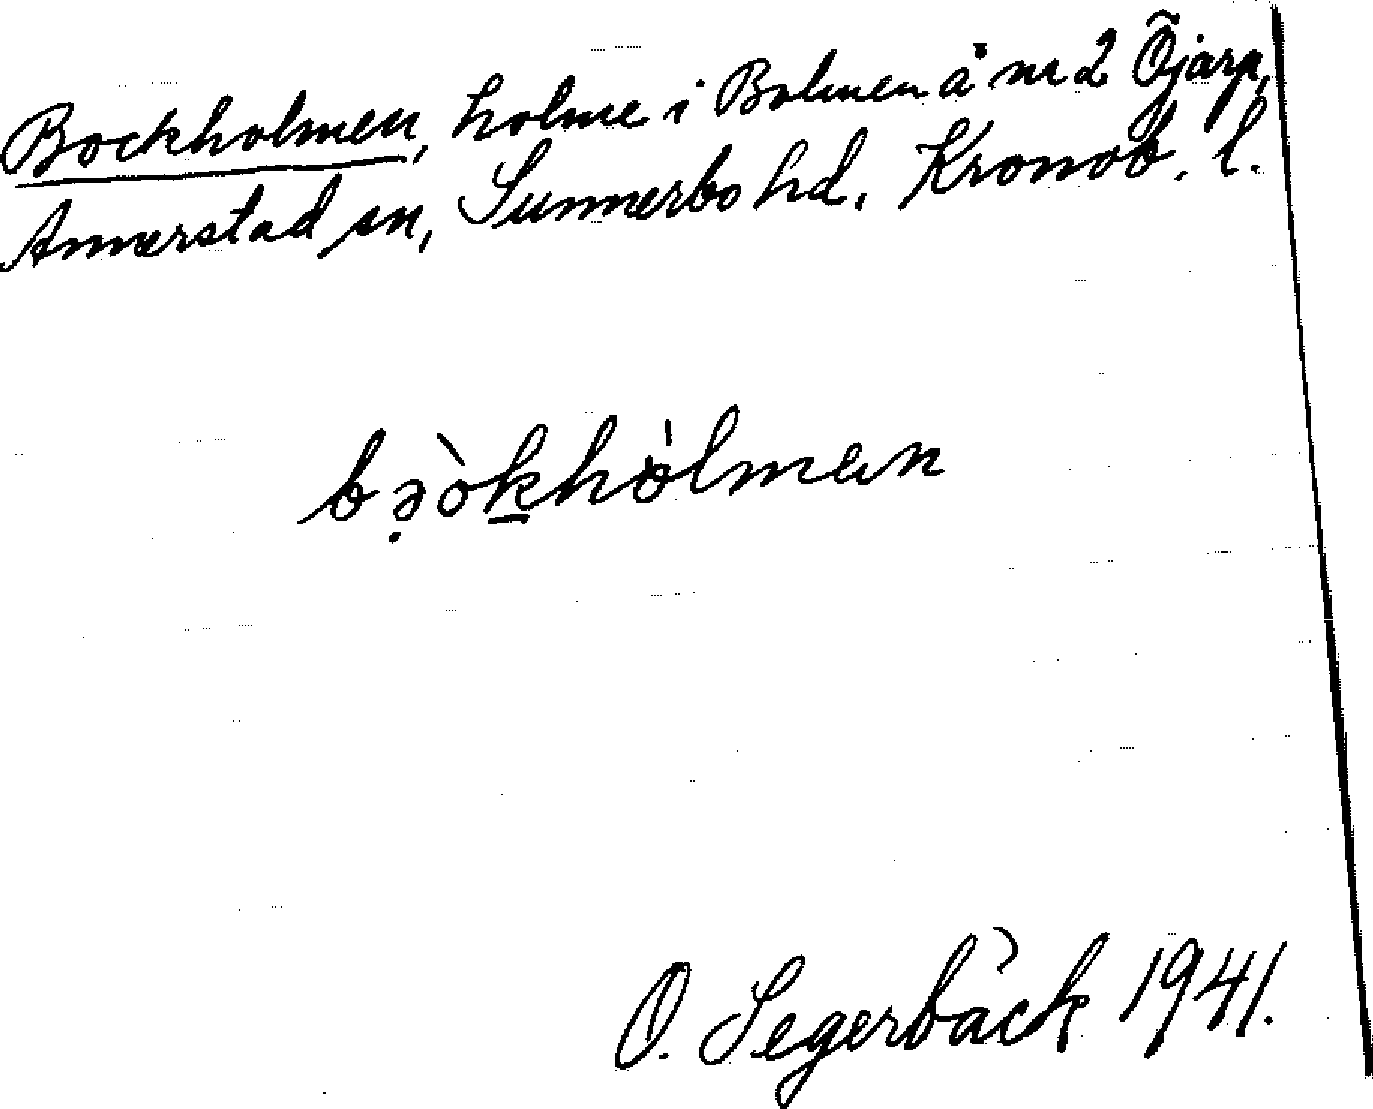 Bockholmen, holme i Bolmen å nr 2 Õjarp,
Annerstad sn, Sunnerbo hd. Kronob. l.
bə̣òkhòlmen
O. Segerbäck 1941.